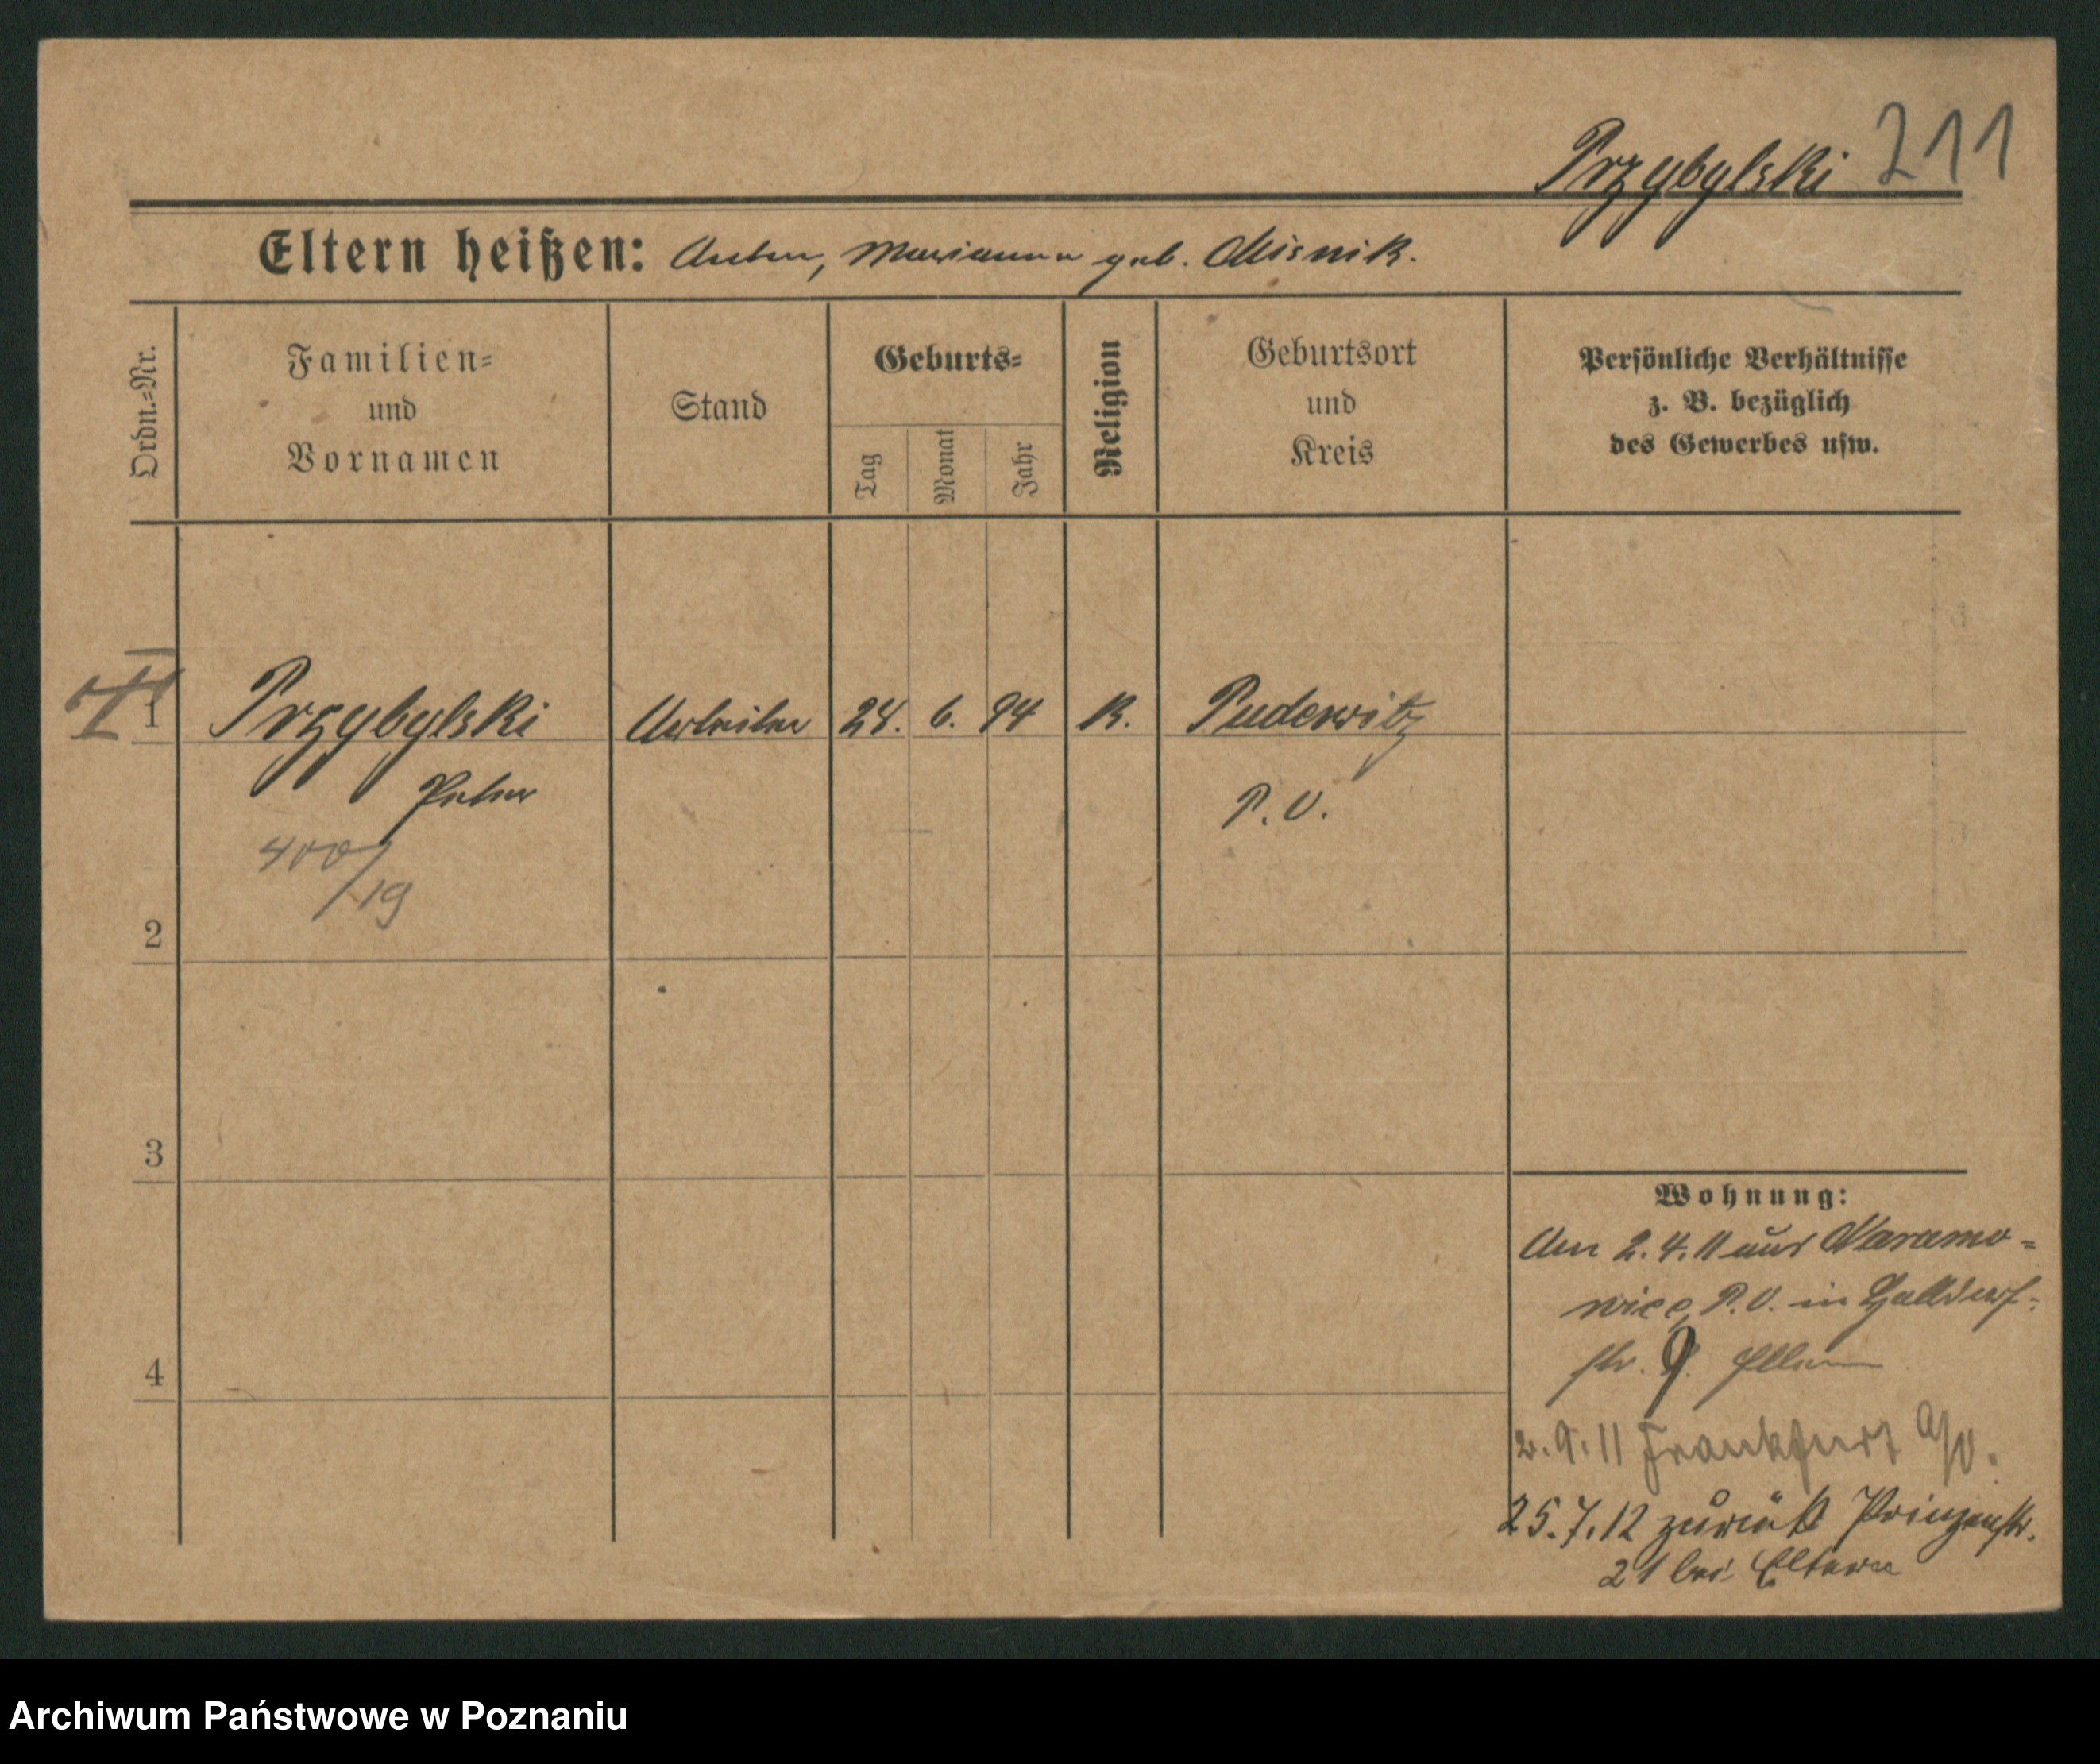 Przybylski 211
Eltern heißen: Anton, Marianna geb. Misnik.
Ordn.=Nr.
Familien=
und
Vornamen
Stand
Geburts=
Tag
Monat
Jahr
Religion
Geburtsort
und
Kreis
Persönliche Verhältnisse
z. B. bezüglich
des Gewerbes usw.
1 Przybylski Arbeiter 24. 6. 94 K. Pudewitz
Peter P. O.
400/19
2
3
4
Wohnung:
Am 2. 4. 11 aus Naramo=
wice, P. O. in
str. 9. Eltern
2. 9. 11 Frankfurt a/O.
25. 7. 12 zurück Prinzenstr.
21 bei Eltern
Archiwum Państwowe w Poznaniu